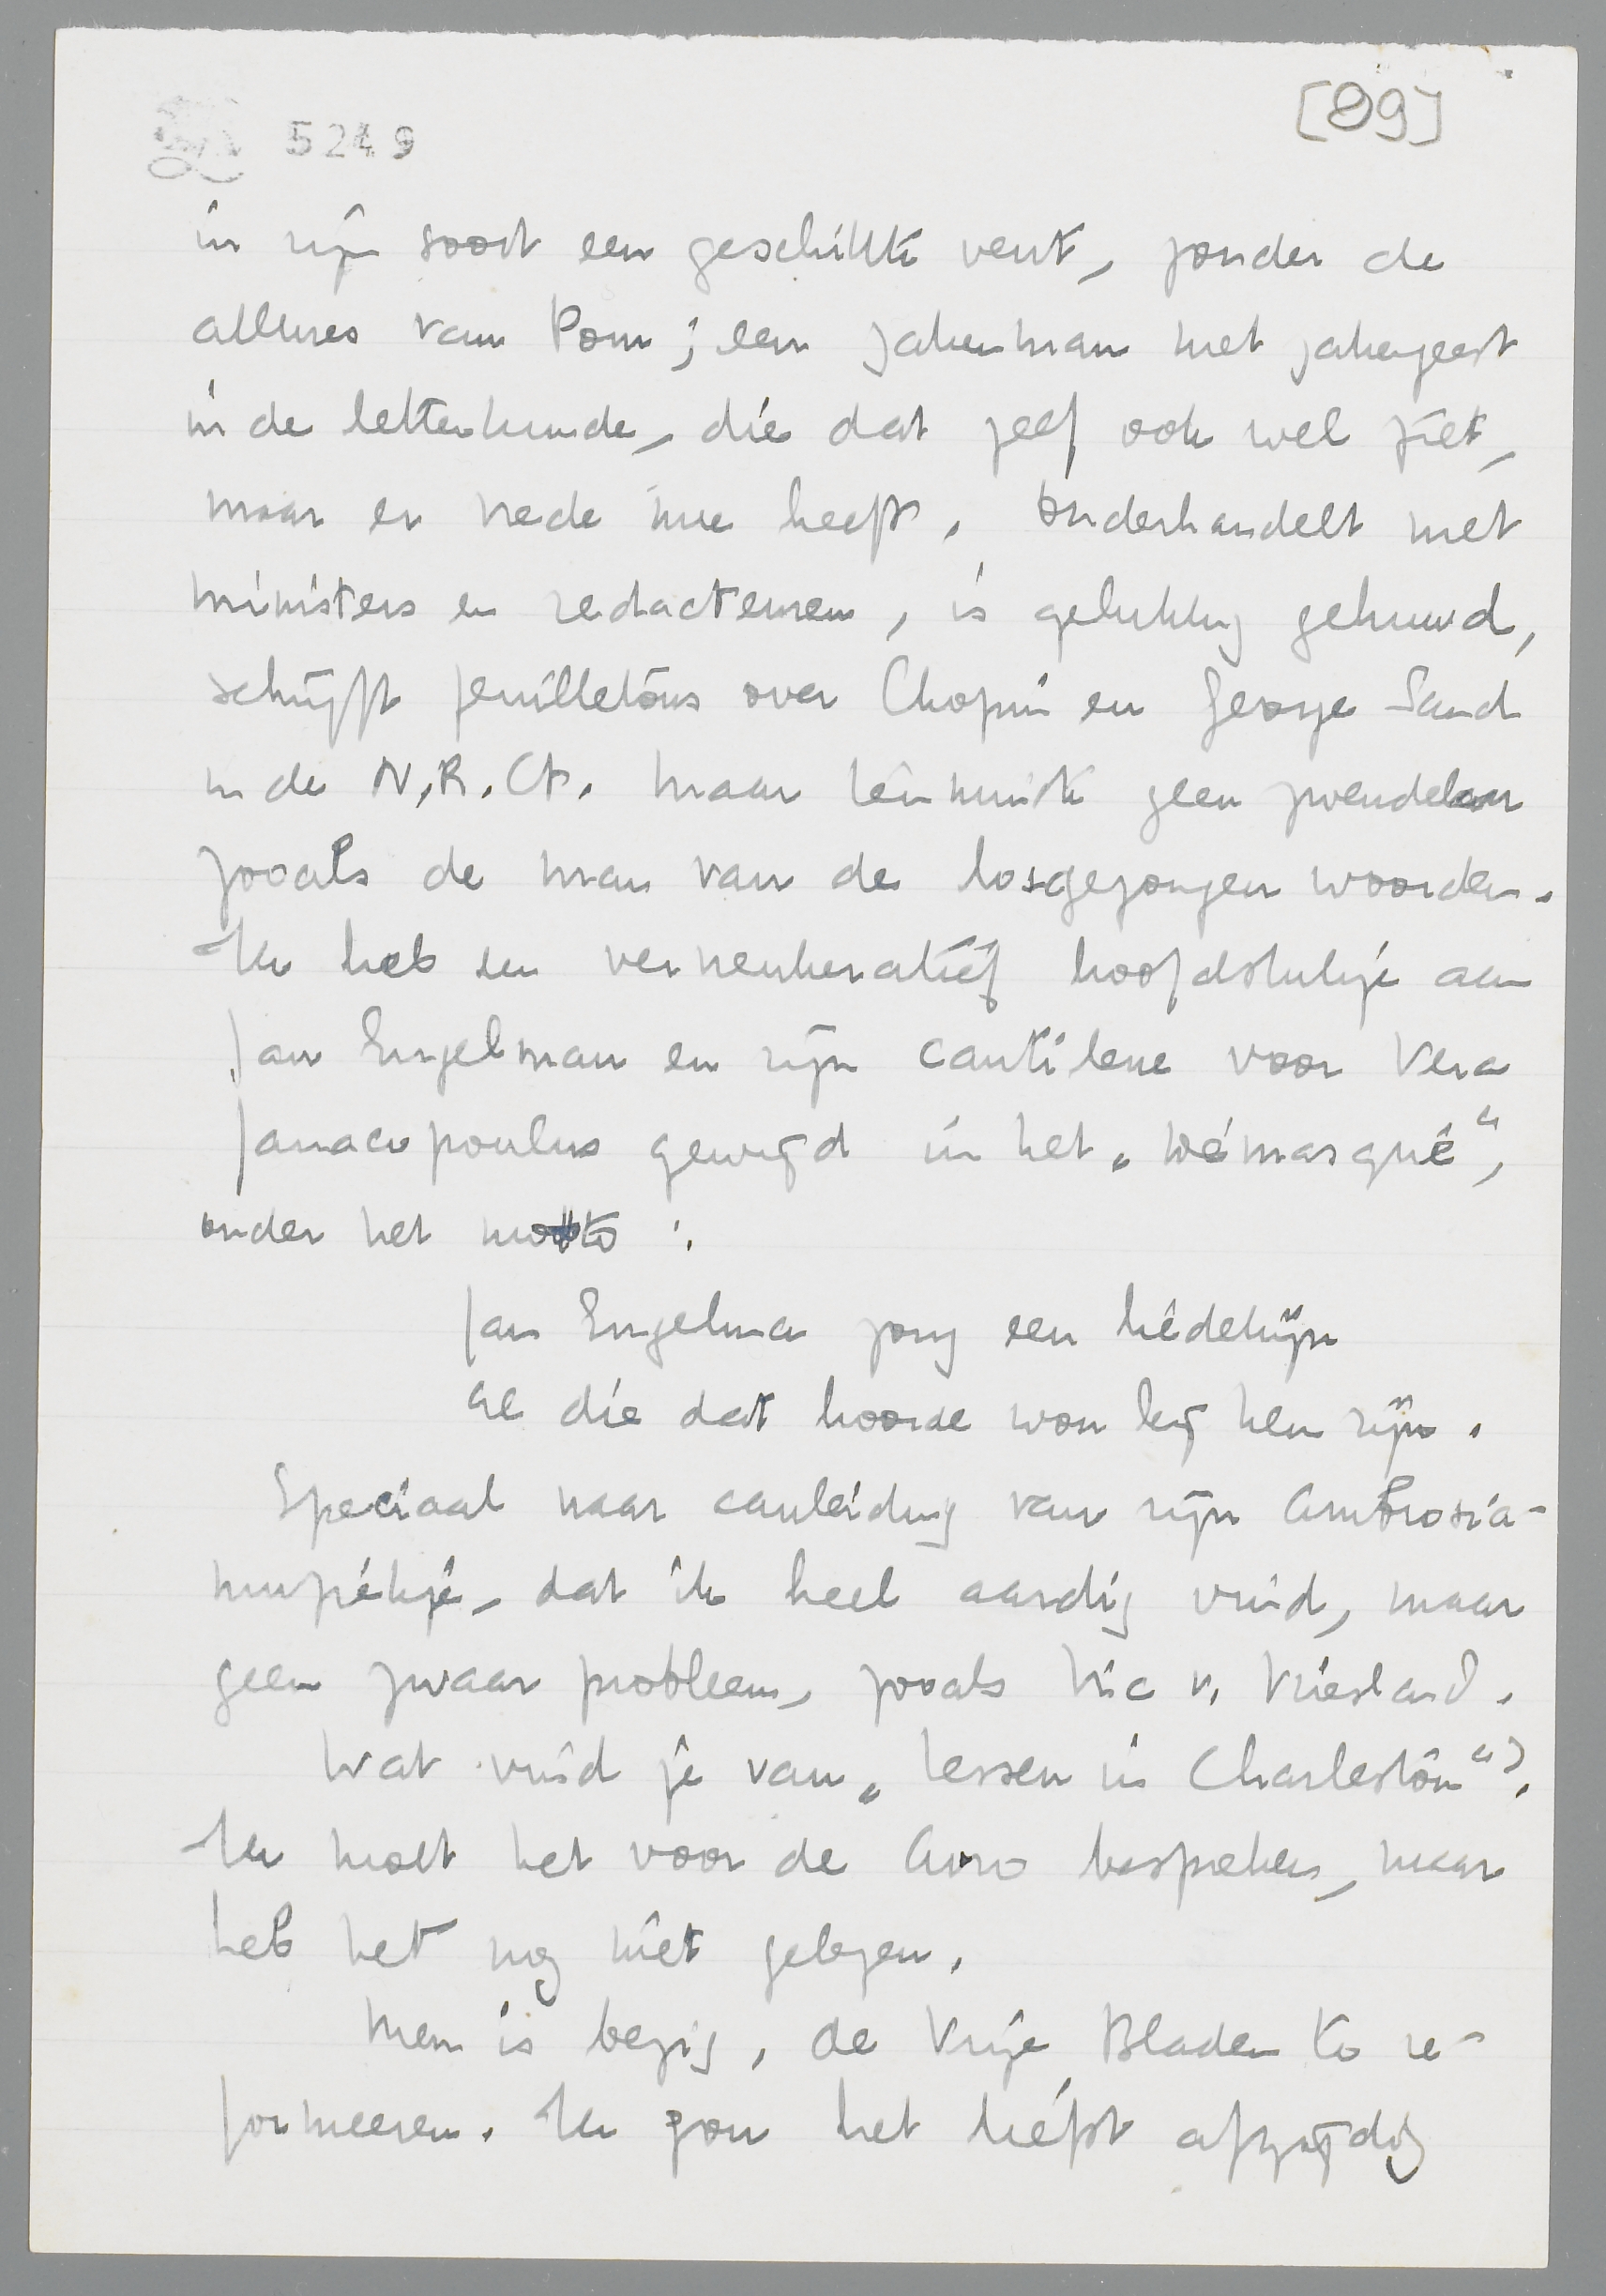 5249
[89]
in zijn soort een geschikte vent, zonder de
allures van Pom; een zakenman met zakengeest
in de letterkunde, die dat zelf ook wel ziet,
maar er vrede mee heeft. Onderhandelt met
ministers en redacteuren, is gelukkig gehuwd,
schrijft feuilletons over Chopin en George Sand
in de N.R.Ct. maar tenminste geen zwendelaar
zooals de man van de losgezongen woorden.
Ik heb een verneukeratief hoofdstukje aan
Jan Engelman en zijn cantilene voor Vera
Janacopoulus gewijd in het „Démasqué”,
onder het motto:
Jan Engelman zong een liedekijn
Al die dat hoorde wou bij hem zijn.
Speciaal naar aanleiding van zijn Ambrosia-
muziekje, dat ik heel aardig vind, maar
geen zwaar probleem, zooals Vic v. Vriesland.
Wat vind je van „Lessen in Charleston”?
Ik moet het voor de Avro bespreken, maar
heb het nog niet gelezen.
Men is bezig, de Vrije Bladen te re-
formeeren. Ik zou het liefst afzijdig